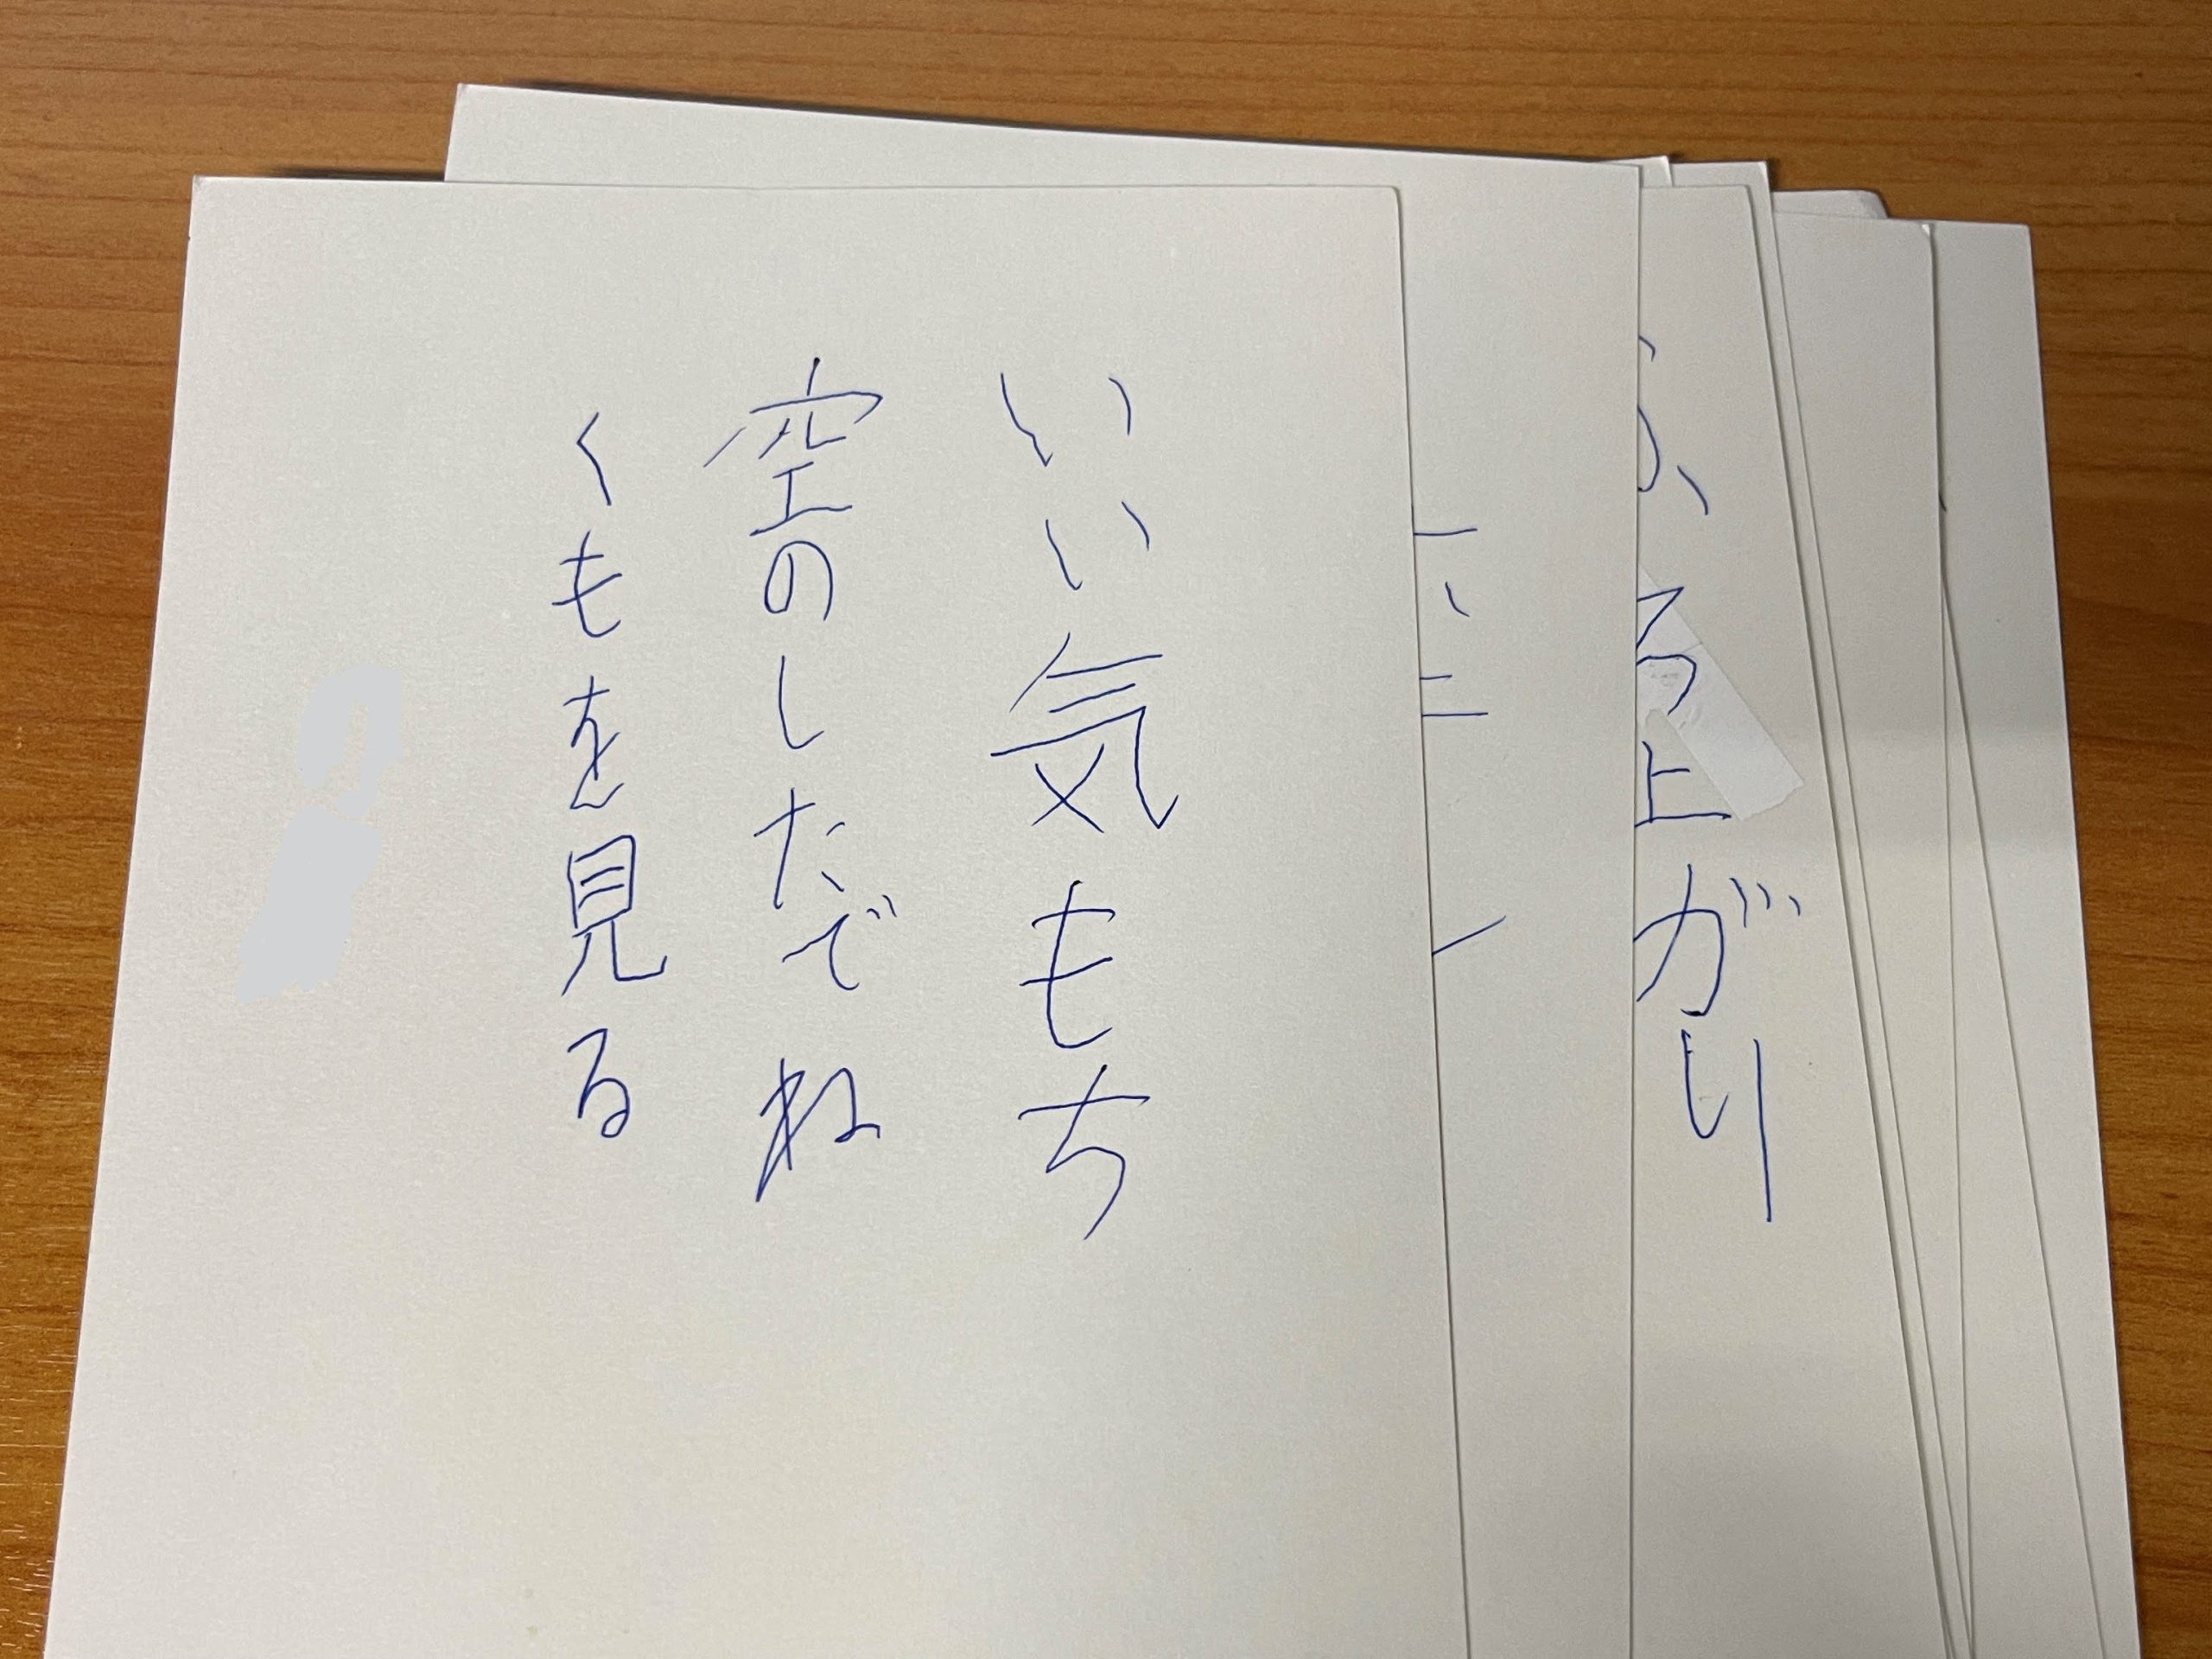 いい気もち
空のしたでね
くもを見る
上がり